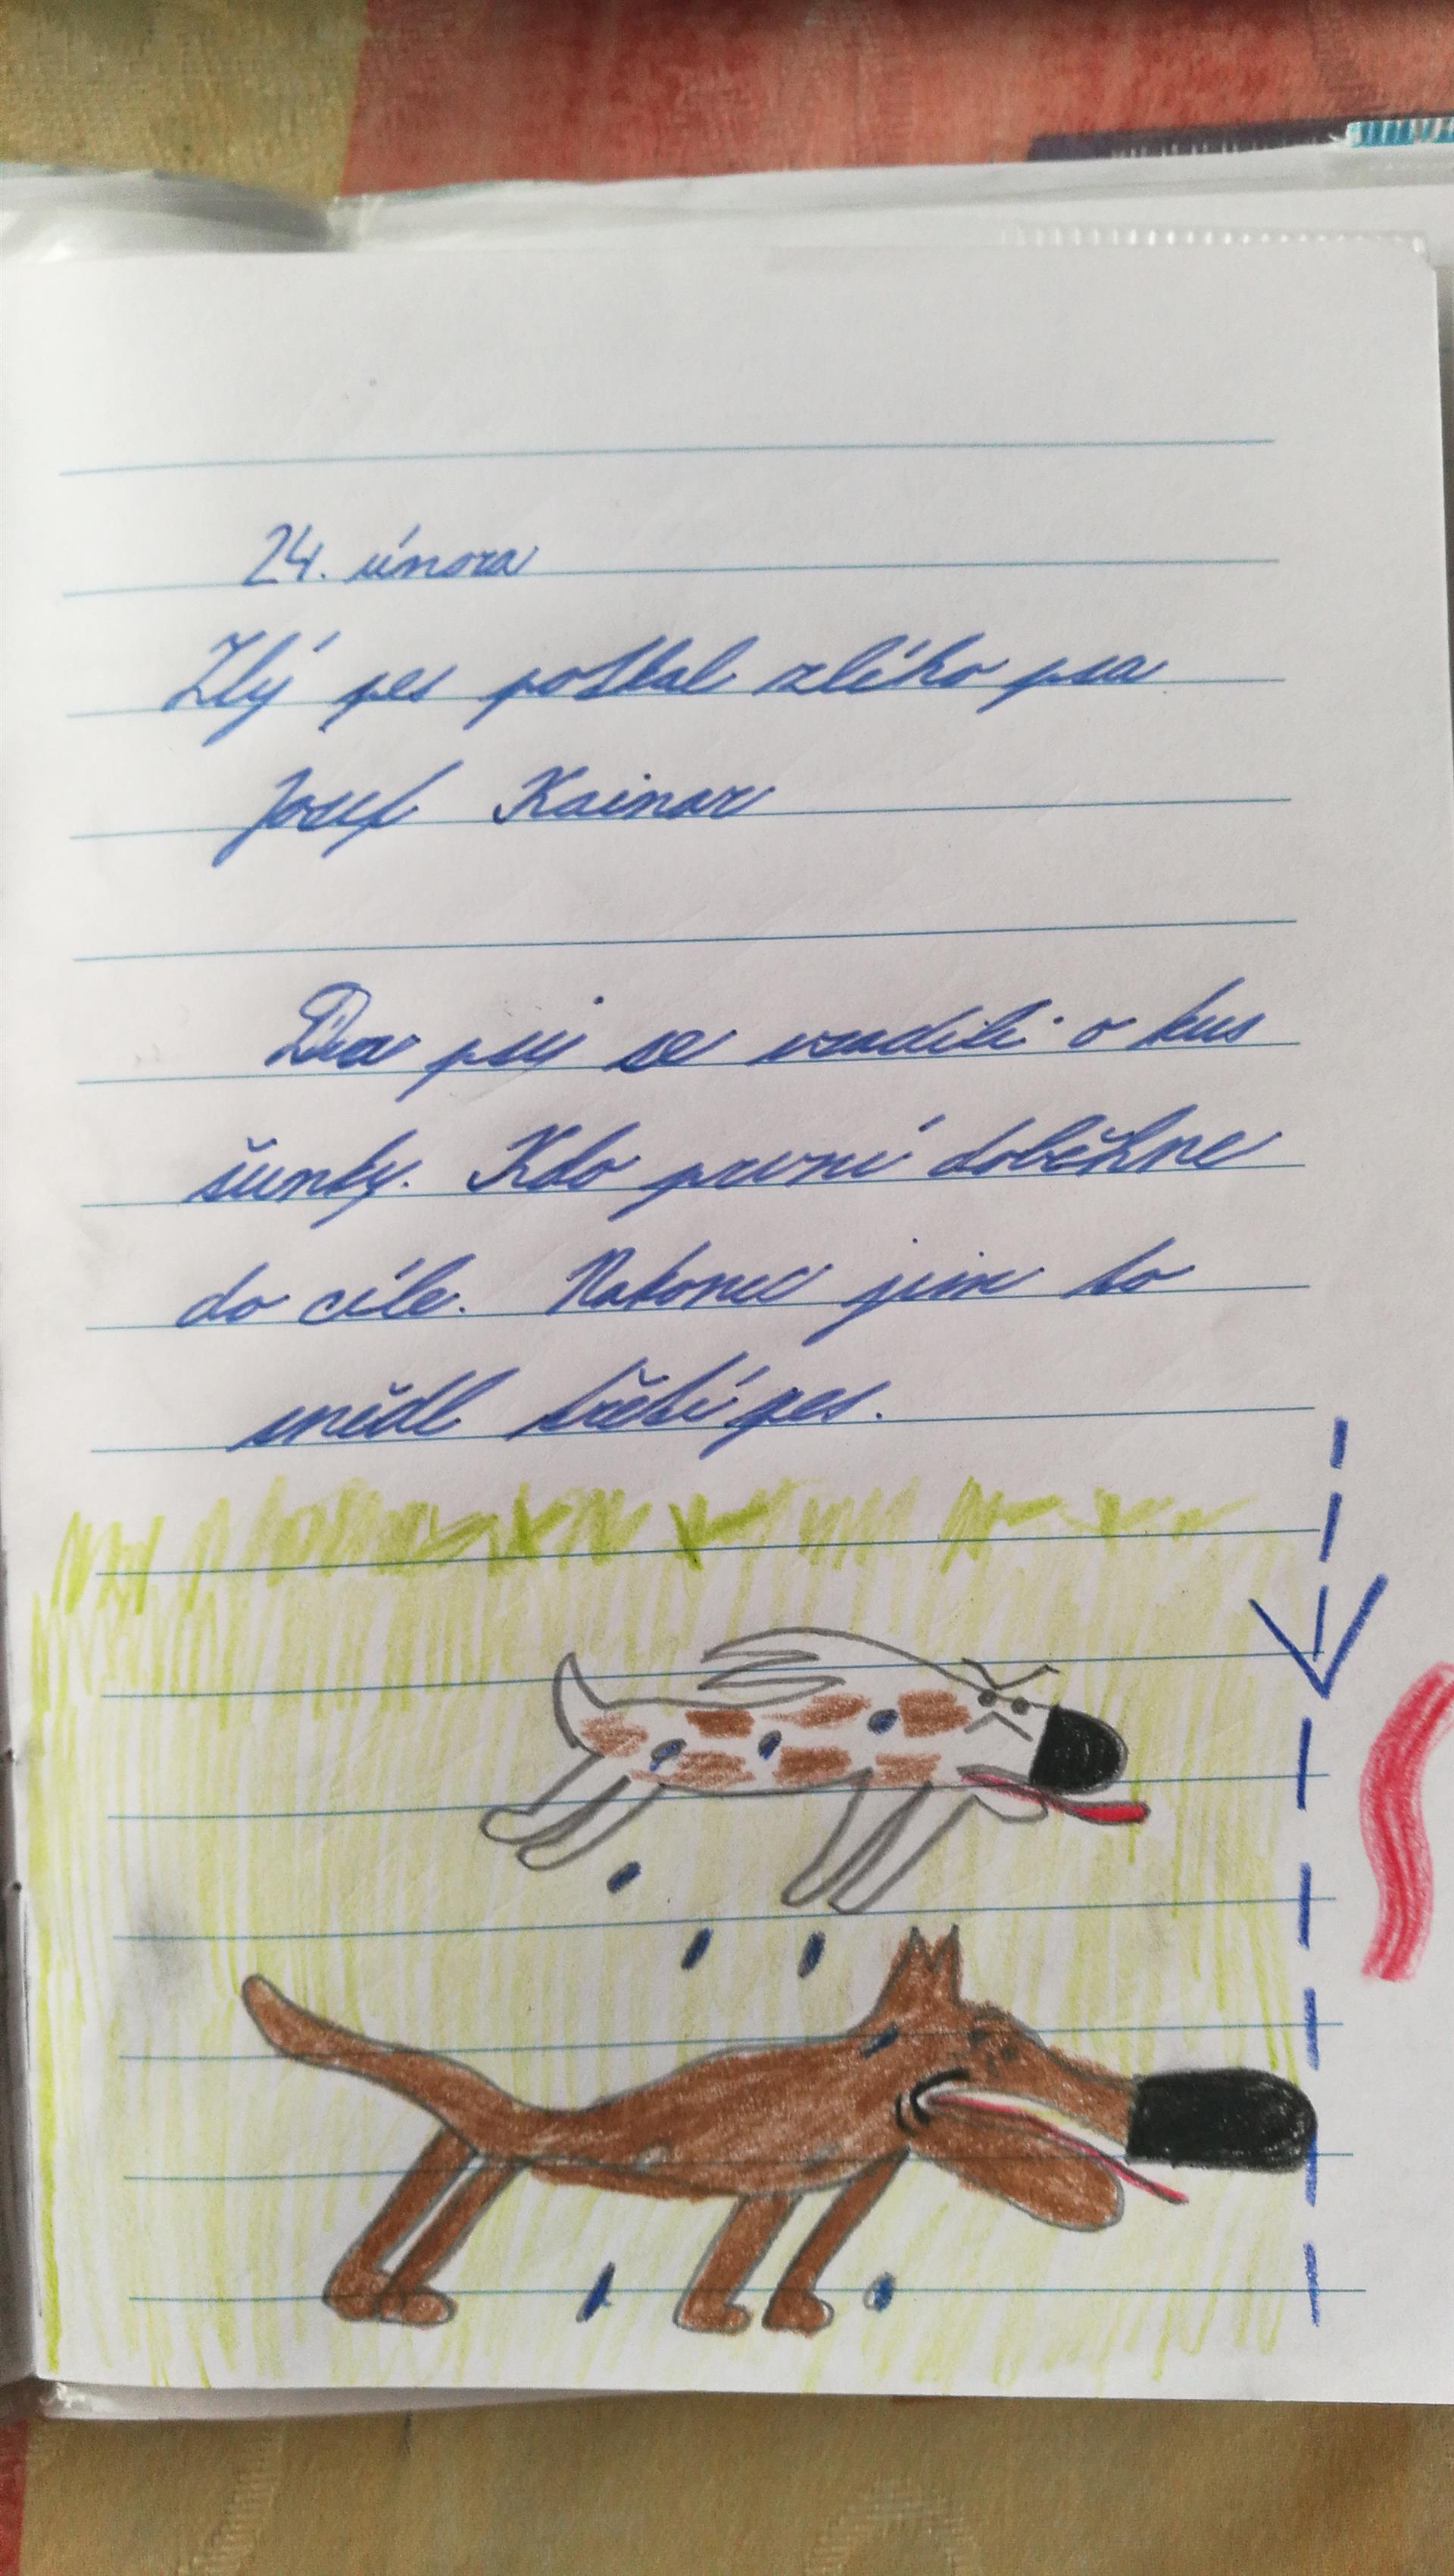 24. února
Zlý pes potkal zlího psa
Josef Kainar
Dva psi se vsadili o kus
šunky. Kdo první doběhne
do cíle. Nakonec jim to
snědl třetí pes.